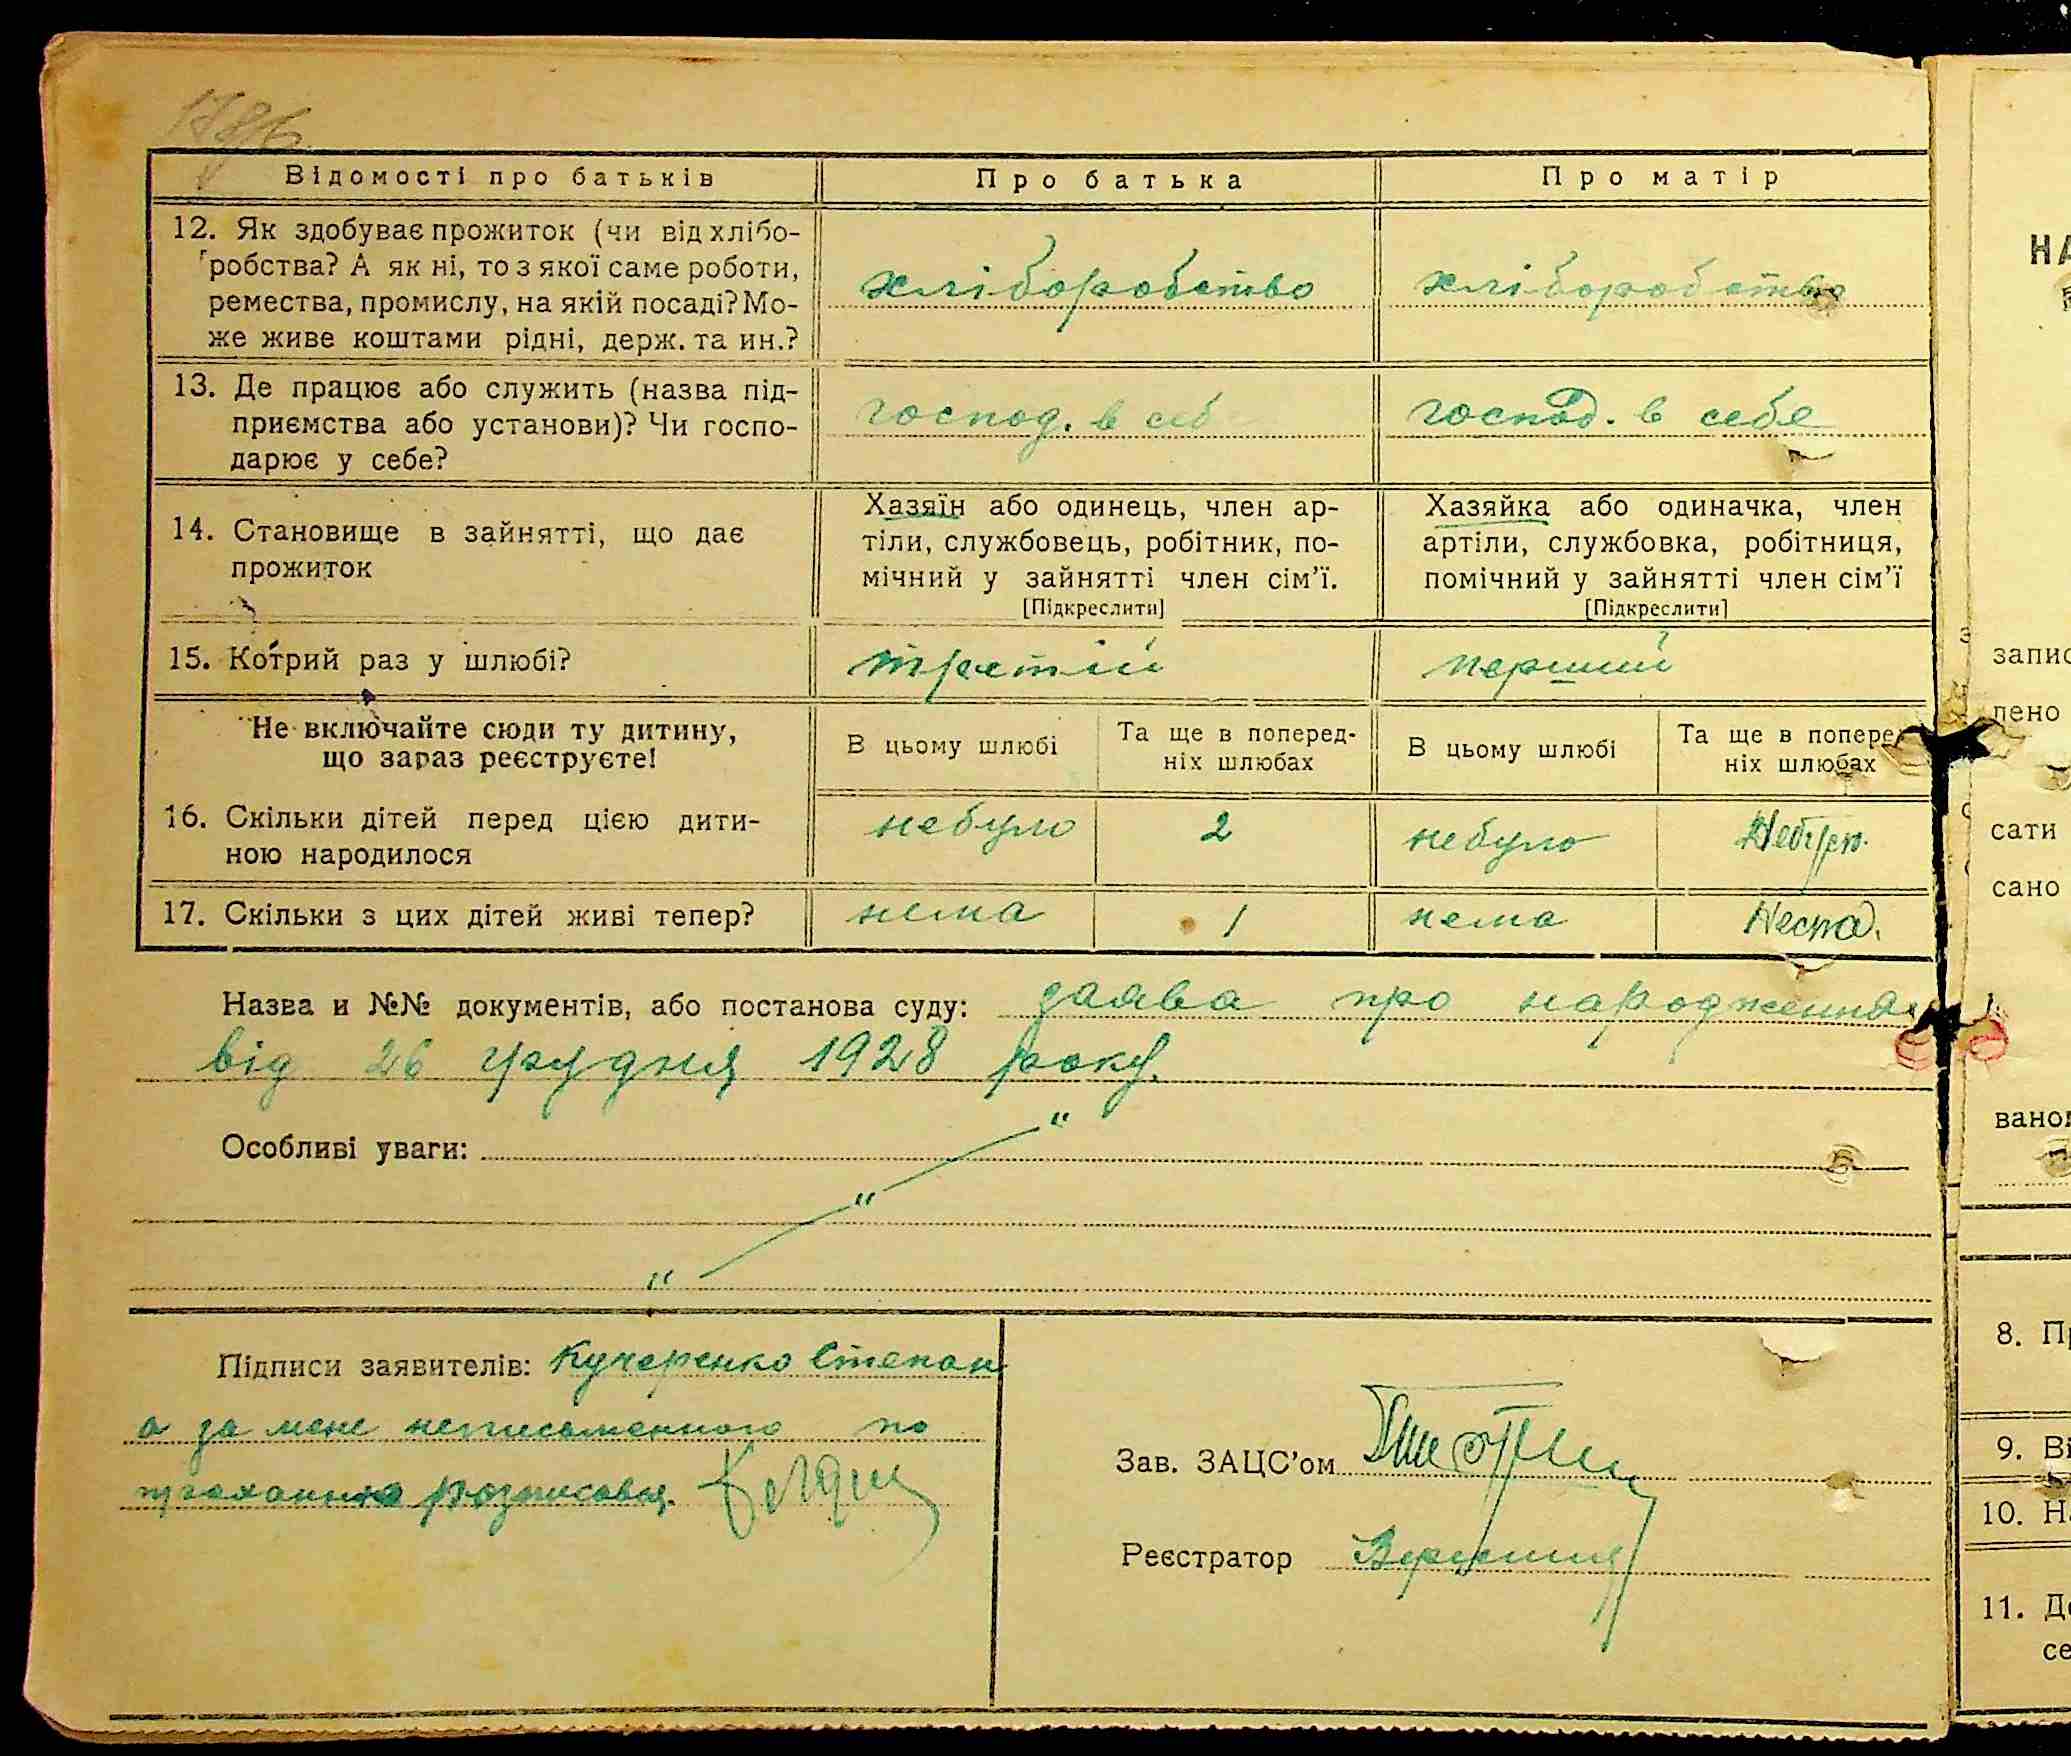 Відомості про батьків Про батька Про матір
12. Як здобуває прожиток (чи від хлібо-
робства? А як ні, то з якої саме роботи,
ремества, промислу, на якій посаді? Мо-
же живе коштами рідні, держ. та ин.?
хліборобство хліборобство
13. Де працює або служить (назва під-
приємства або установи)? Чи госпо-
дарює у себе?
господ. в себ господ. в себе
14. Становище в зайнятті, що дає
прожиток
Хазяїн або одинець, член ар-
тіли, службовець, робітник, по-
мічний у зайнятті член сім'ї.
[Підкреслити]
Хазяйка або одиначка, член
артіли, службовка, робітниця,
помічний у зайнятті член сім'ї
[Підкреслити]
15. Котрий раз у шлюбі? третій перший
Не включайте сюди ту дитину,
що зараз реєструєте!
В цьому шлюбі
Та ще в поперед-
ніх шлюбах
В цьому шлюбі
Та ще в попере
ніх шлюбах
16. Скільки дітей перед цією дити-
ною народилося
небуло 2 небуло
17. Скільки з цих дітей живі тепер? нема 1 нема
Назва и №№ документів, або постанова суду: заява про народження
від 26 грудня 1928 року.
Особливі уваги: "
"
"
Підписи заявителів: Кучеренко Степан
а за мене неписьменного по
проханню розписавсь.
Зав. ЗАЦС'ом
Реєстратор
НА
запис
лено
сати
сано
вано
8. Пр
9. Ві
10. На
11. Де
се